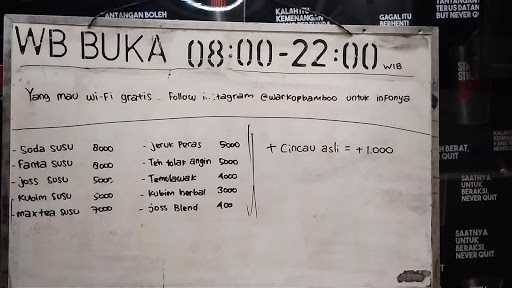 TANTANGAN BOLEH
KALAH ITU
KEMENANGAN
GAGAL ITU
BERHENTI
TERUS DATAN
BUT NEVER Q
WB BUKA 08:00-22:00 WIB
Yang mau wi-Fi gratis. Follow tagram @warkopbamboo untuk infonya
- Soda susu 8000
- Fanta susu 8000
- joss susu 5000
- Kubim susu 5000
- maxtea susu 7000
- jeruk Peras 5000
- Teh tolak angin 5000
- Temulawak 4000
- Kubim herbal 3000
- joss Blend 400
+ Cincau asli = +1.000
H BERAT,
QUIT
SAATNYA
UNTUK
BERAKSI,
NEVER QUIT
SAATNYA
UNTUK
BERAKSI,
NEVER QUIT